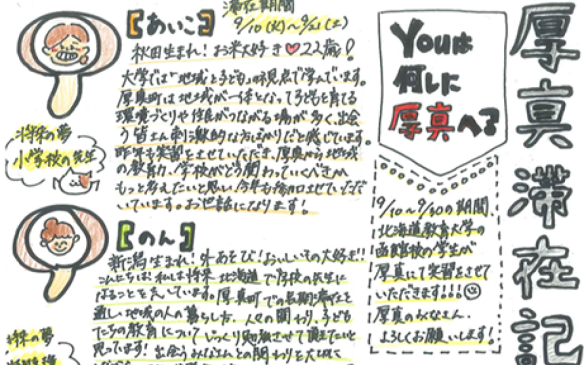 厚真滞在記
Youは
何しに
厚真へ?
9/10~9/30の期間、
北海道教育大学の
函館校の学生が
厚真にて実習をさせて
いただきます!!!
厚真のみなさん、
よろしくお願いします!
【あいこ】
滞在期間
9/10(火)~9/21(土)
秋田生まれ!お米大好き♥22歳!
大学では「地域と子ども」の視点で学んでいます。
厚真町は地域が一体となって子どもを育てる
環境づくりや住民がつながる場が多く、出会
う皆さん刺激的な方ばかりだと感じています。
昨年も実習をさせていただき、厚真から地域
の教育力、学校がどう関わっていくべきか
もっと考えたいと思い、今年も参加させていただ
いています。お世話になります!
将来の夢
小学校の先生
【のん】
新潟生まれ!外あそび!おいしいもの大好き!!
こんにちは!私は将来、北海道で学校の先生に
なることを考えています。厚真町での長期滞在を
通し、地域の人の暮らし方、人々の関わり、子ども
たちの教育について じっくり勉強させて頂きたいと
思ってます!出会うみなさんとの関わりを大切に
将来の夢